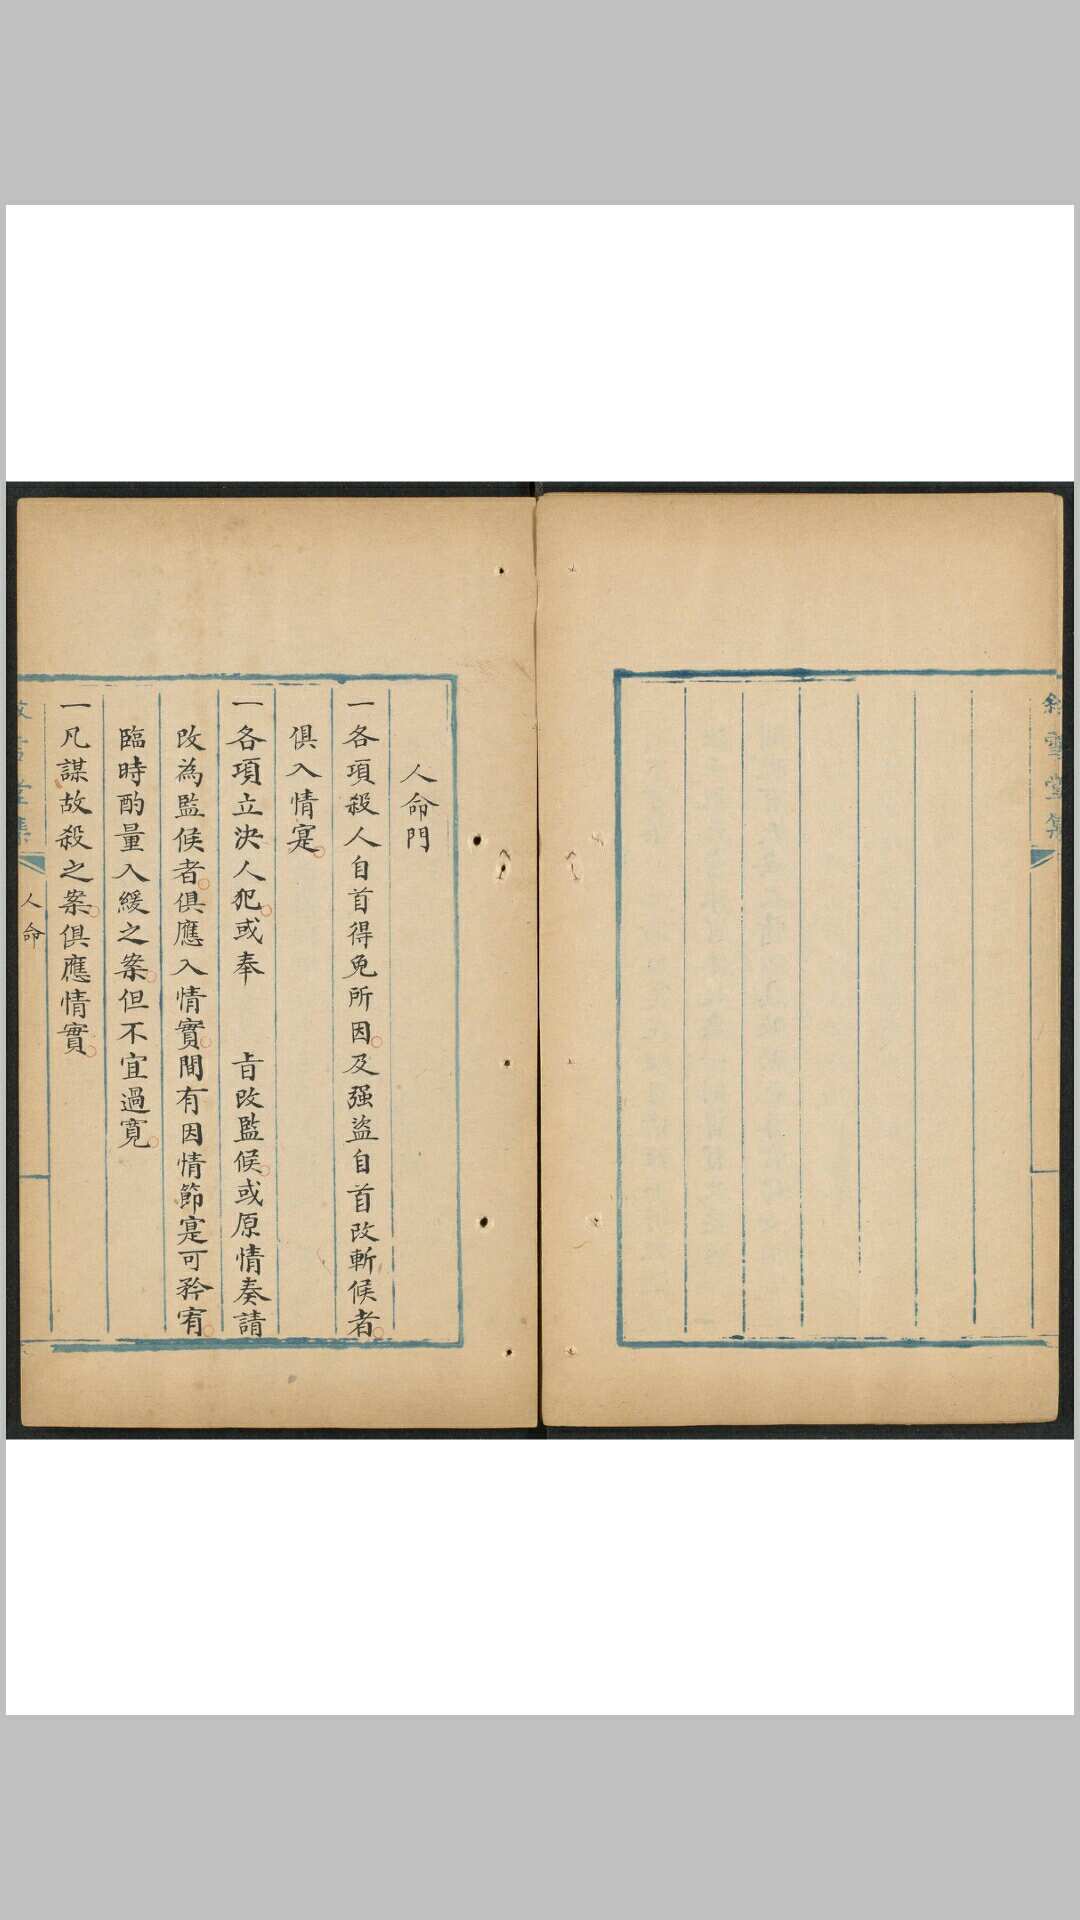 敘雪堂集
人命門
一各項殺人自首得免所因及强盜自首改斬候者
俱入情寔
一各項立決人犯或奉 旨改監候或原情奏請
改為監候者俱應入情實間有因情節寔可矜宥
臨時酌量入緩之案但不宜過寬
一凡謀故殺之案俱應情實
敘雪堂集
人命